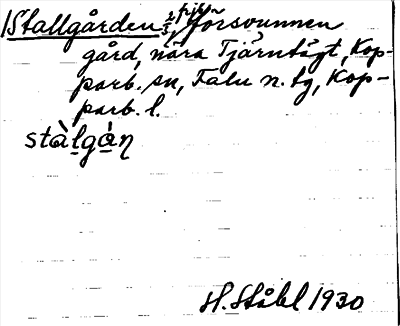 Stallgården, försvunnen
gård, nära Tjärntägt, Kop-
parb. sn, Falu n. tg, Kop-
parb. l.
stàlgàn
H. Ståhl 1930